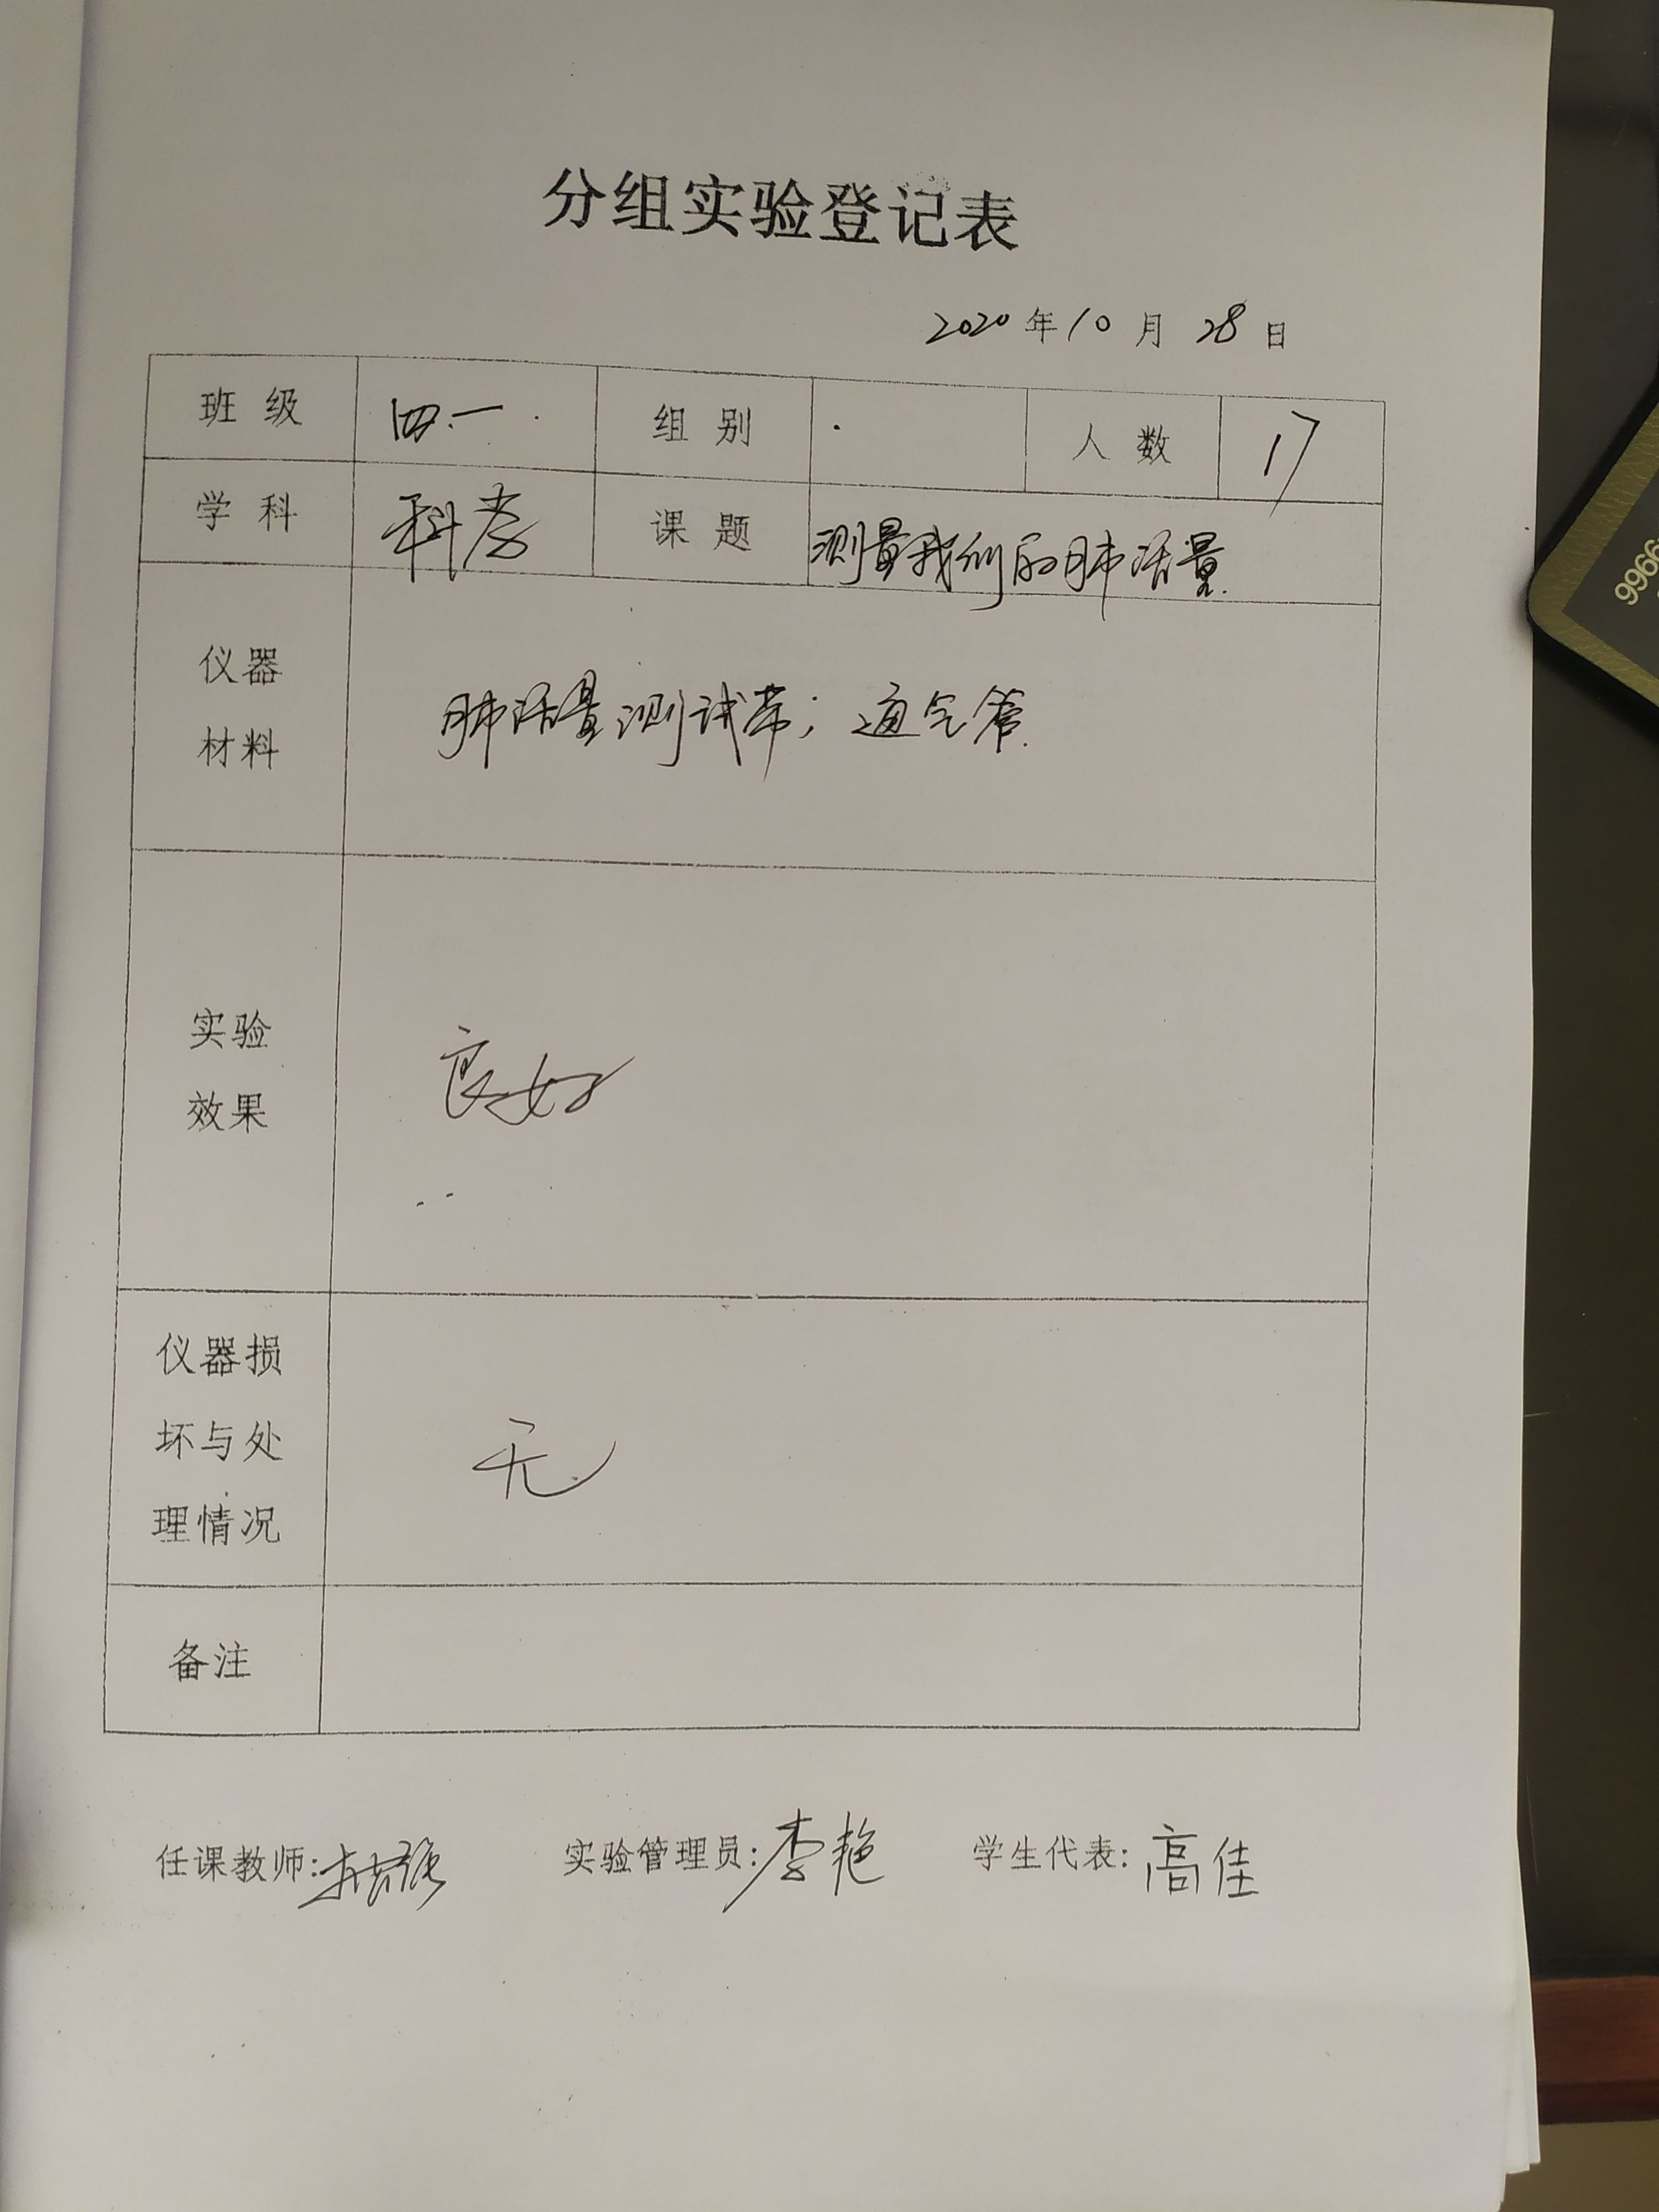 分组实验登记表
2020年10月28日
班级 四.一 组别 人数 17
学科 科学 课题 测量我们的肺活量.
仪器
材料
肺活量测试带; 通气管.
实验
效果
良好
仪器损
坏与处
理情况
无
备注
任课教师: 实验管理员: 李艳 学生代表: 高佳
9966